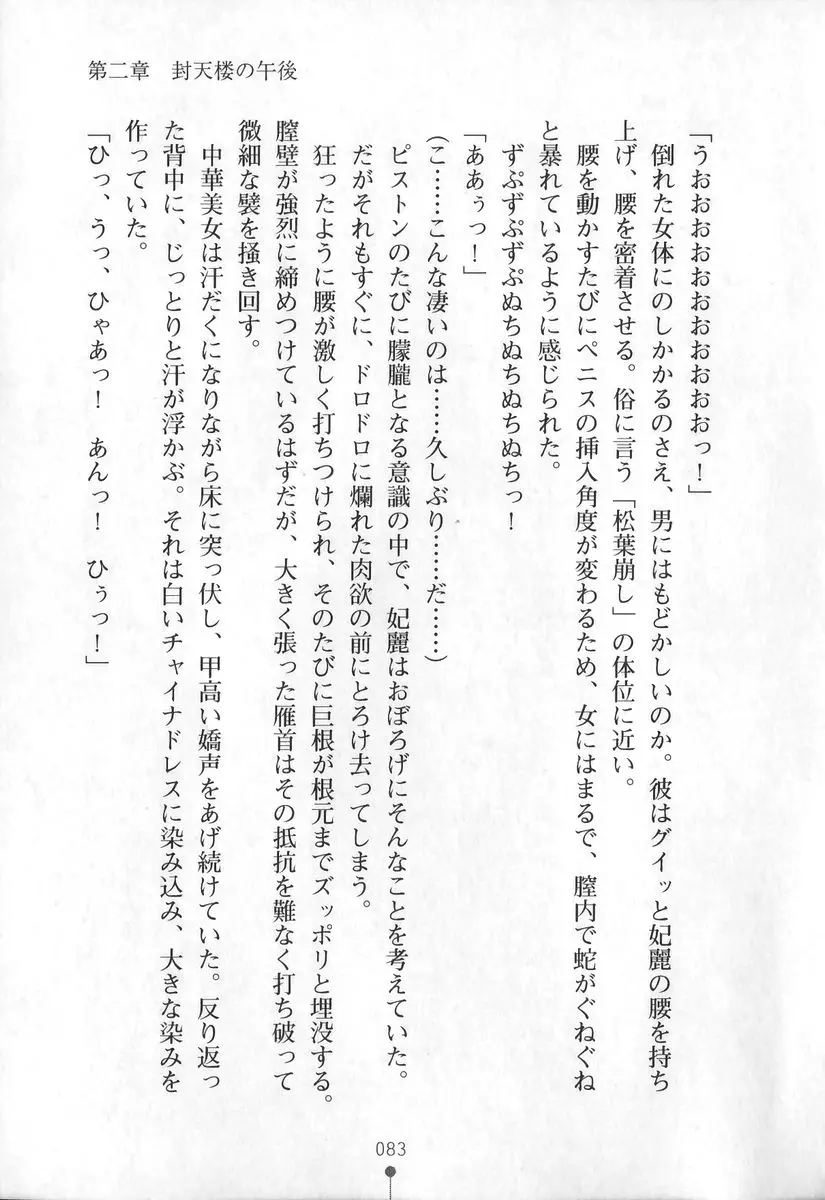 第二章　封天楼の午後
「うおおおおおおおおおおっ！」
倒れた女体にのしかかるのさえ、男にはもどかしいのか。彼はグイッと妃麗の腰を持ち
上げ、腰を密着させる。俗に言う「松葉崩し」の体位に近い。
腰を動かすたびにペニスの挿入角度が変わるため、女にはまるで、膣内で蛇がぐねぐね
と暴れているように感じられた。
ずぷずぷずぷぬちぬちぬちっ！
「ああぅっ！」
（こ……こんな凄いのは……久しぶり……だ……）
ピストンのたびに朦朧となる意識の中で、妃麗はおぼろげにそんなことを考えていた。
だがそれもすぐに、ドロドロに爛れた肉欲の前にとろけ去ってしまう。
狂ったように腰が激しく打ちつけられ、そのたびに巨根が根元までズッポリと埋没する。
膣壁が強烈に締めつけているはずだが、大きく張った雁首はその抵抗を難なく打ち破って
微細な襞を掻き回す。
中華美女は汗だくになりながら床に突っ伏し、甲高い嬌声をあげ続けていた。反り返っ
た背中に、じっとりと汗が浮かぶ。それは白いチャイナドレスに染み込み、大きな染みを
作っていた。
「ひっ、うっ、ひゃあっ！　あんっ！　ひぅっ！」
083